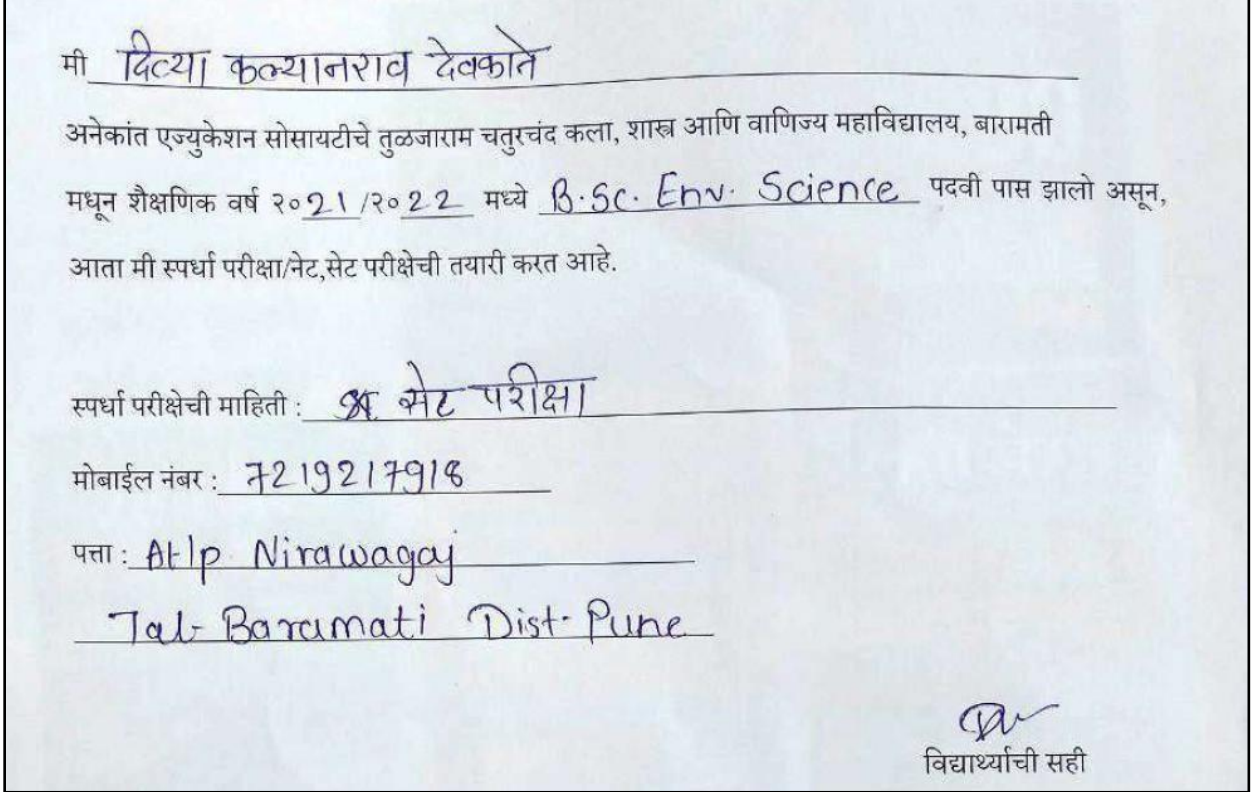 मी दिव्या कल्यानराव देवकाते
अनेकांत एज्युकेशन सोसायटीचे तुळजाराम चतुरचंद कला, शास्त्र आणि वाणिज्य महाविद्यालय, बारामती
मधून शैक्षणिक वर्ष २०21/२०22 मध्ये B.Sc. Env. Science पदवी पास झालो असून,
आता मी स्पर्धा परीक्षा/नेट,सेट परीक्षेची तयारी करत आहे.
स्पर्धा परीक्षेची माहिती : सेट परीक्षा
मोबाईल नंबर : 7219217918
पत्ता : At/p. Nirawagaj
Tal- Baramati Dist- Pune
विद्यार्थ्याची सही